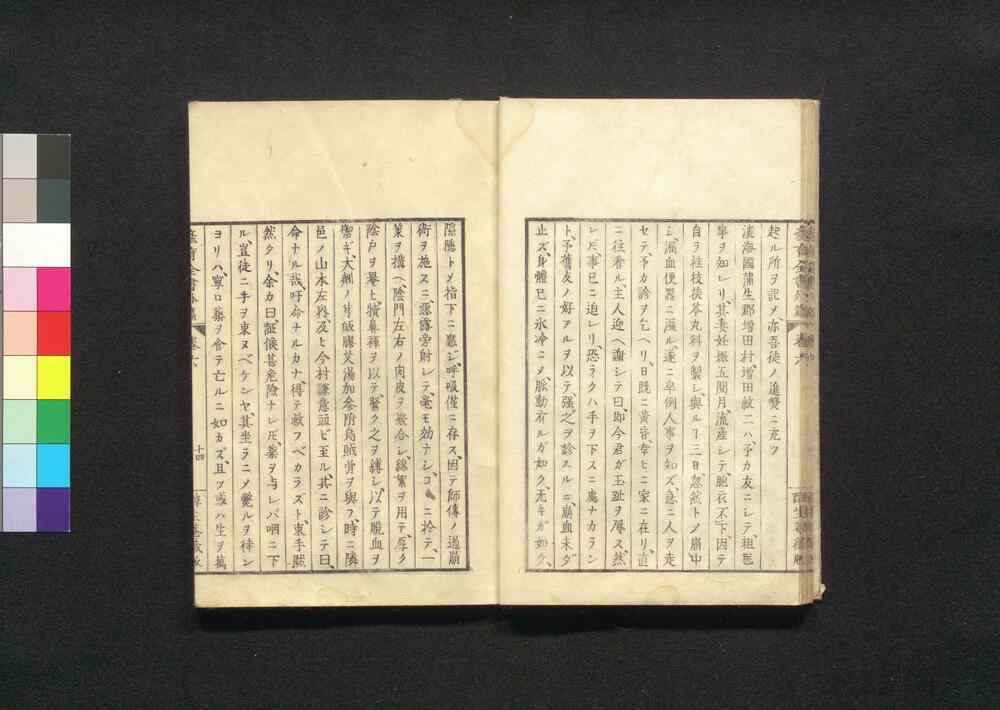 起ル所ヲ記シ亦吾徒ノ進贊ニ充ツ
淡海國蒲生郡増田村増田敬二ハ、予カ友ニシテ、粗醫
事ヲ知レリ、其妻妊娠五閲月、流産シテ、胞衣不下、因テ
自ラ桂枝茯苓丸料ヲ製シ與ル了三日、忽然トメ崩中
シ、瀉血便器ニ満ル、遂ニ卒倒人事ヲ知ズ、急ニ人ヲ走
セテ予カ診ヲ乞ヘリ、日既ニ黄昏、幸ヒニ家ニ在リ、直
ニ往看ル、主人迎ヘ謝シテ曰、即今君ガ玉趾ヲ辱ス、然
レ𪜈事已ニ迫レリ、恐ラクハ手ヲ下スニ處ナカラン
ト、予舊友ノ好アルヲ以テ、强之ヲ診スルニ、崩血未ダ
止ズ、身體已ニ氷冷ニメ、脈動有ルガ如ク、无キガ如ク、
隠隠トメ指下ニ應ジ、呼吸僅ニ存ス、因テ師傳ノ遏崩
術ヲ施スニ、霑霑旁射シテ、毫モ効ナシ、コヽニ於テ、一
策ヲ搆ヘ、陰門左右ノ肉皮ヲ撮合シ、綿絮ヲ用テ、厚ク
陰戸ヲ擧ヒ、犢鼻褌ヲ以テ、緊ク之ヲ縛シ、以テ脱血ヲ
禦ギ、大劑ノ芎皈膠艾湯加參附烏賊骨ヲ與フ、時ニ隣
邑ノ山本左膳及ヒ今村謙意並ビ至ル、共ニ診シテ曰、
命ナル哉、吁命ナルカナ、得テ救フベカラズト、束手默
然タリ、余カ曰、証候甚危險ナレ𪜈、藥ヲ与レバ咽ニ下
ル、豈徒ニ手ヲ束ヌベケンヤ、其坐ラニメ斃ルヲ待ン
ヨリハ、寧ロ藥ヲ含テ亡ルニ如カズ、且ツ或ハ生ヲ萬
十四